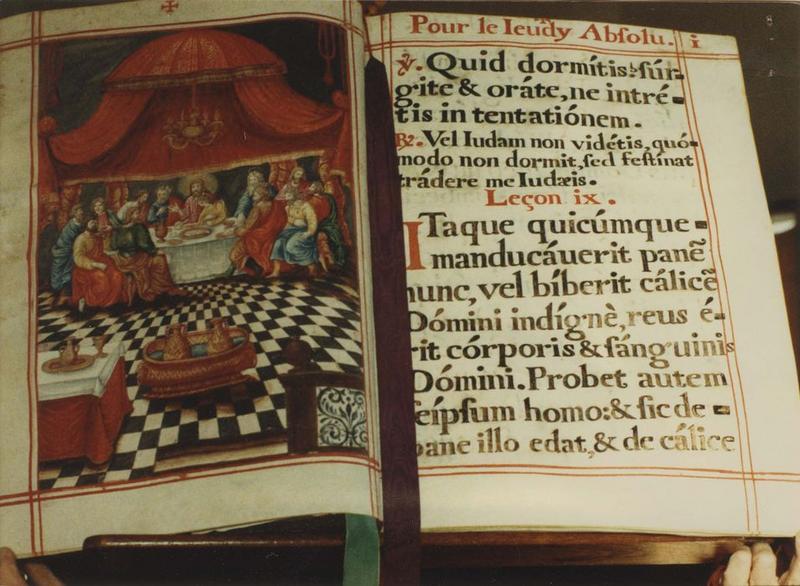 Pour le Ieudy Absolu. i
℣. Quid dormítis? ſúr-
gite & oráte, ne intré-
tis in tentatiónem.
℟. Vel Iudam non vidétis, quó-
modo non dormit, ſed feſtinat
trádere me Iudæis.
Leçon ix.
ITaque quicúmque
manducáuerit panē
hunc, vel bíberit cálicē
Dómini indígnè, reus é-
rit córporis & ſánguinis
Dómini. Probet autem
ſeípſum homo: & ſic de
pane illo edat, & de cálice